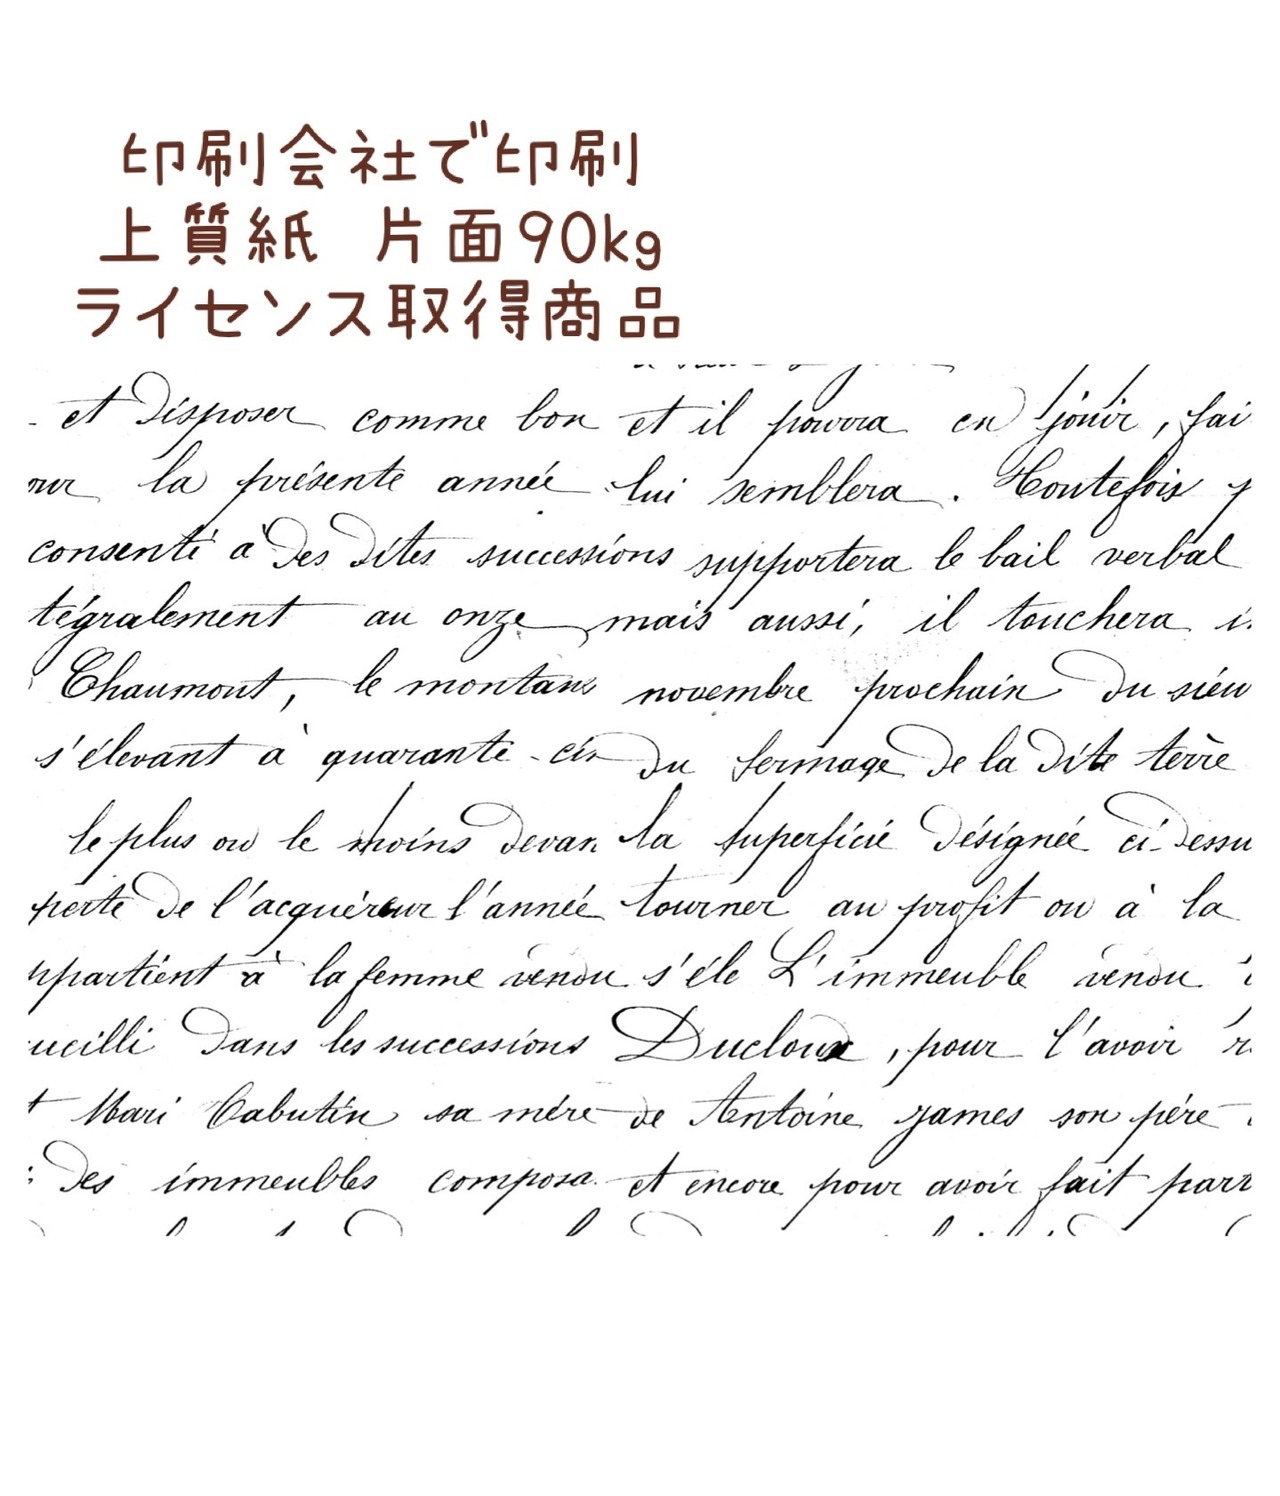 印刷会社で印刷
上質紙 片面90kg
ライセンス取得商品
et disposer comme bon et il pourra en jouir, fai
our la présente année lui semblera. Toutefois
consenti à des dites successions supportera le bail verbal
tégralement au onze mais aussi, il touchera i
Chaumont, le montant novembre prochain du sieu
s'élevant à quarante-cin du fermage de la dite terre
le plus ou le moins devan la superficie désignée ci-dessu
perte de l'acquéreur l'année tourner au profit ou à la
ppartient à la femme vendu s'éle L'immeuble vendu
ueilli dans les successions Ducloux, pour l'avoir r
t Mari Cabutin sa mère de Antoine James son père
des immeubles composa et encore pour avoir fait part